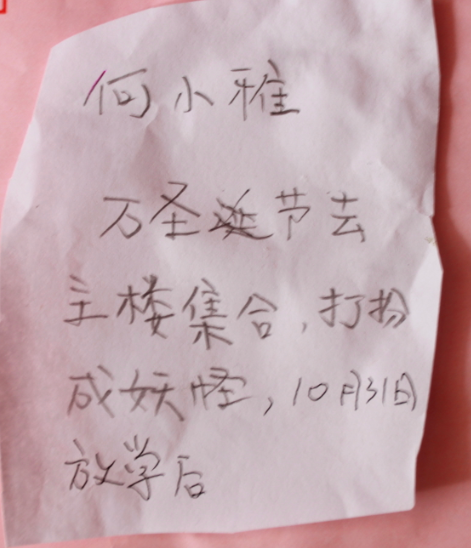 何小雅
万圣诞节去
主楼集合,打扮
成妖怪,10月31日
放学后